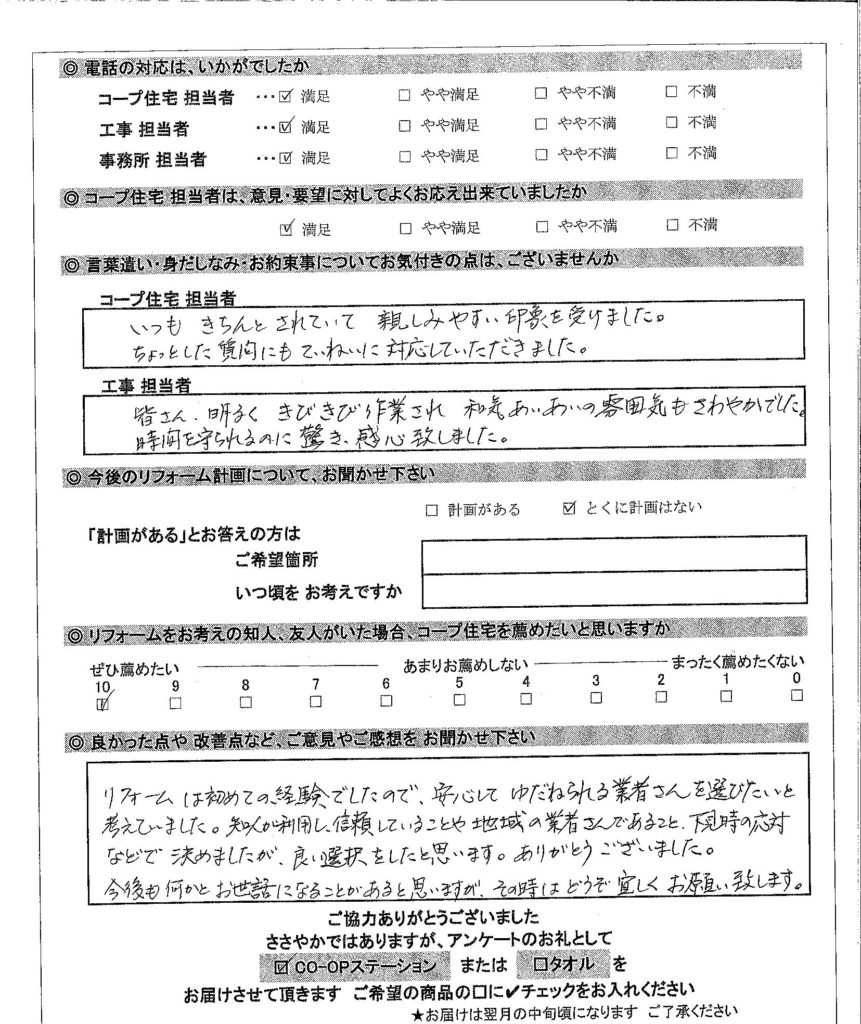 ◎ 電話の対応は、いかがでしたか
コープ住宅 担当者 …☑ 満足 □ やや満足 □ やや不満 □ 不満
工事 担当者 …☑ 満足 □ やや満足 □ やや不満 □ 不満
事務所 担当者 …☑ 満足 □ やや満足 □ やや不満 □ 不満
◎ コープ住宅 担当者は、意見・要望に対してよくお応え出来ていましたか
☑ 満足 □ やや満足 □ やや不満 □ 不満
◎ 言葉遣い・身だしなみ・お約束事についてお気付きの点は、ございませんか
コープ住宅 担当者
いつも きちんとされていて 親しみやすい印象を受けました。
ちょっとした質問にもていねいに対応していただきました。
工事 担当者
皆さん、明るく きびきび作業され 和気あいあいの雰囲気もさわやかでした。
時間を守られるのに驚き、感心致しました。
◎ 今後のリフォーム計画について、お聞かせ下さい
□ 計画がある ☑ とくに計画はない
「計画がある」とお答えの方は
ご希望箇所
いつ頃を お考えですか
◎ リフォームをお考えの知人、友人がいた場合、コープ住宅を薦めたいと思いますか
ぜひ薦めたい あまりお薦めしない まったく薦めたくない
10 9 8 7 6 5 4 3 2 1 0
☑ □ □ □ □ □ □ □ □ □ □
◎ 良かった点や 改善点など、ご意見やご感想を お聞かせ下さい
リフォームは初めての経験でしたので、安心して ゆだねられる業者さんを選びたいと
考えていました。知人が利用し信頼していることや地域の業者さんであること、下見時の応対
などで 決めましたが、良い選択をしたと思います。ありがとうございました。
今後も何かとお世話になることがあると思いますが、その時はどうぞ宜しくお願い致します。
ご協力ありがとうございました
ささやかではありますが、アンケートのお礼として
☑ CO-OPステーション または □タオル を
お届けさせて頂きます ご希望の商品の□に✔チェックをお入れください
★お届けは翌月の中旬頃になります ご了承ください